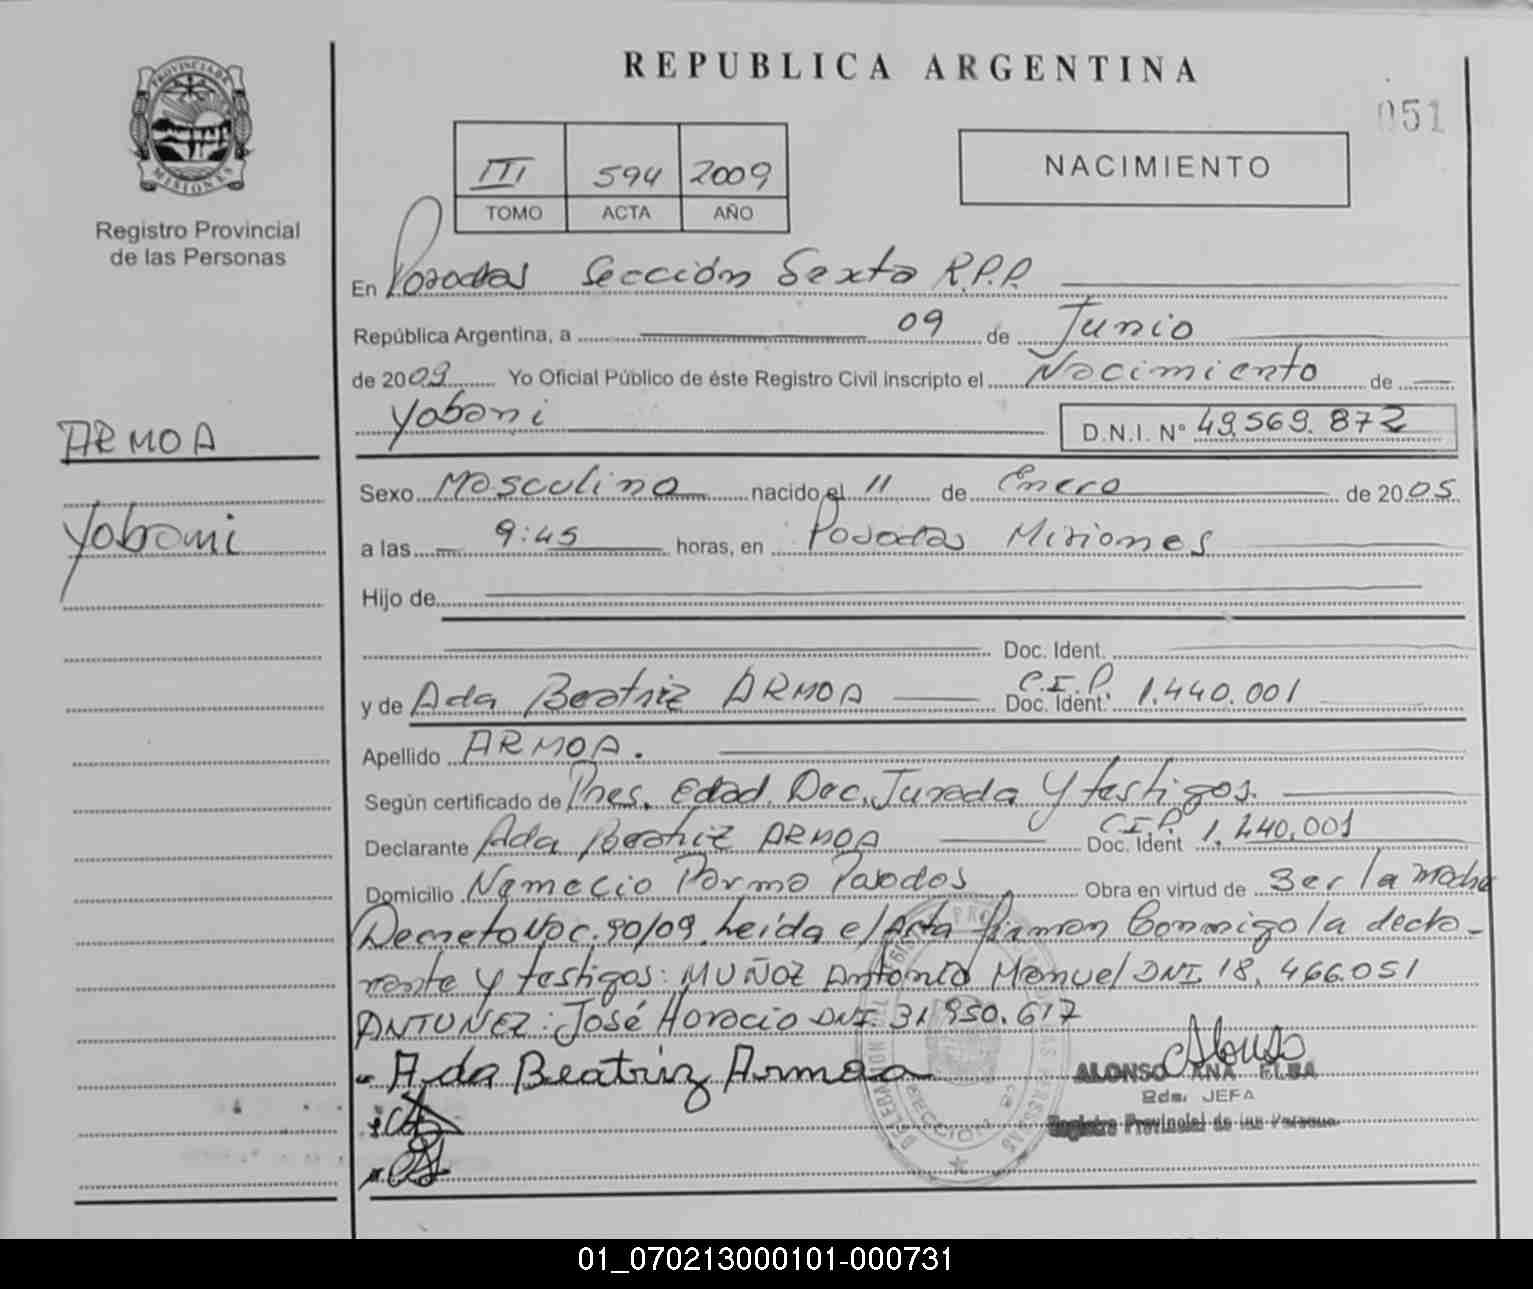 REPUBLICA ARGENTINA
051
PROVINCIA DE
MISIONES
Registro Provincial
de las Personas
III 594 2009
TOMO ACTA AÑO
NACIMIENTO
En Posadas Sección Sexta R.P.P.
República Argentina, a 09 de Junio
de 2009 Yo Oficial Público de éste Registro Civil inscripto el Nacimiento de
Yobani D.N.I. N° 49.569.872
ARMOA
Yobani
Sexo Masculino nacido el 11 de Enero de 2005
a las 9:45 horas, en Posadas Misiones
Hijo de
Doc. Ident.
y de Ada Beatriz ARMOA C.I.P. Doc. Ident. 1.440.001
Apellido ARMOA.
Según certificado de Pres. Edad. Dec. Jurada y testigos.
Declarante Ada Beatriz ARMOA C.I.P. Doc. Ident 1.440.001
Domicilio Nemecio Parma Posadas Obra en virtud de Ser la madre
Decreto Nac. 90/09. Leída el Acta firman Conmigo la decla-
rante y testigos: MUÑOZ Antonio Manuel DNI. 18.466.051
ANTUNEZ: José Horacio DNI. 31.950.617
- Ada Beatriz Armoa
Alonso
ALONSO ANA ELBA
2da. JEFA
Registro Provincial de las Personas
01_070213000101-000731